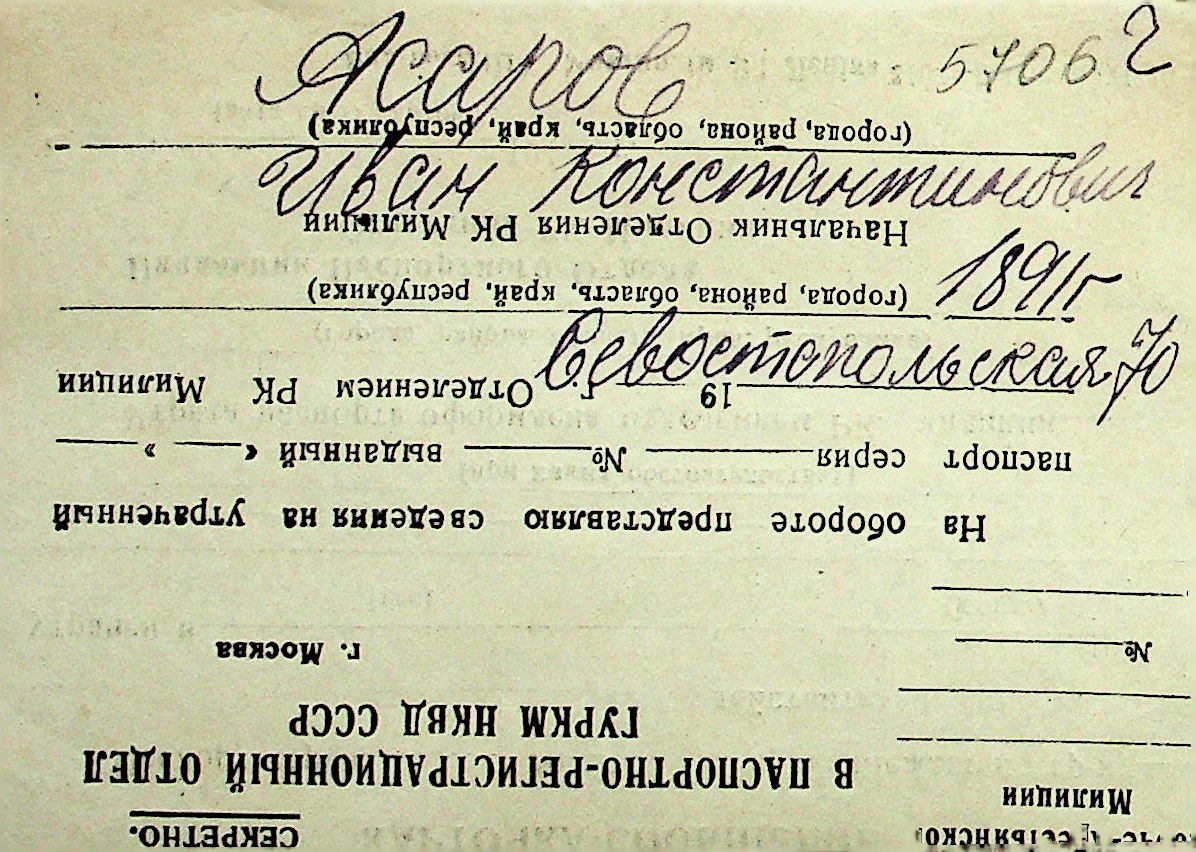 Асаров 5706 2
Иван Константинович
1891г
Севостопольская 70
СЕКРЕТНО.
Милиции
В ПАСПОРТНО-РЕГИСТРАЦИОННЫЙ ОТДЕЛ
ГУРКМ НКВД СССР
г. Москва
№
На обороте представляю сведения на утраченный
паспорт серия № выданный « »
19 г. Отделением РК Милиции
(города, района, область, край, республика)
Начальник Отделения РК Милиции
(города, района, область, край, республика)